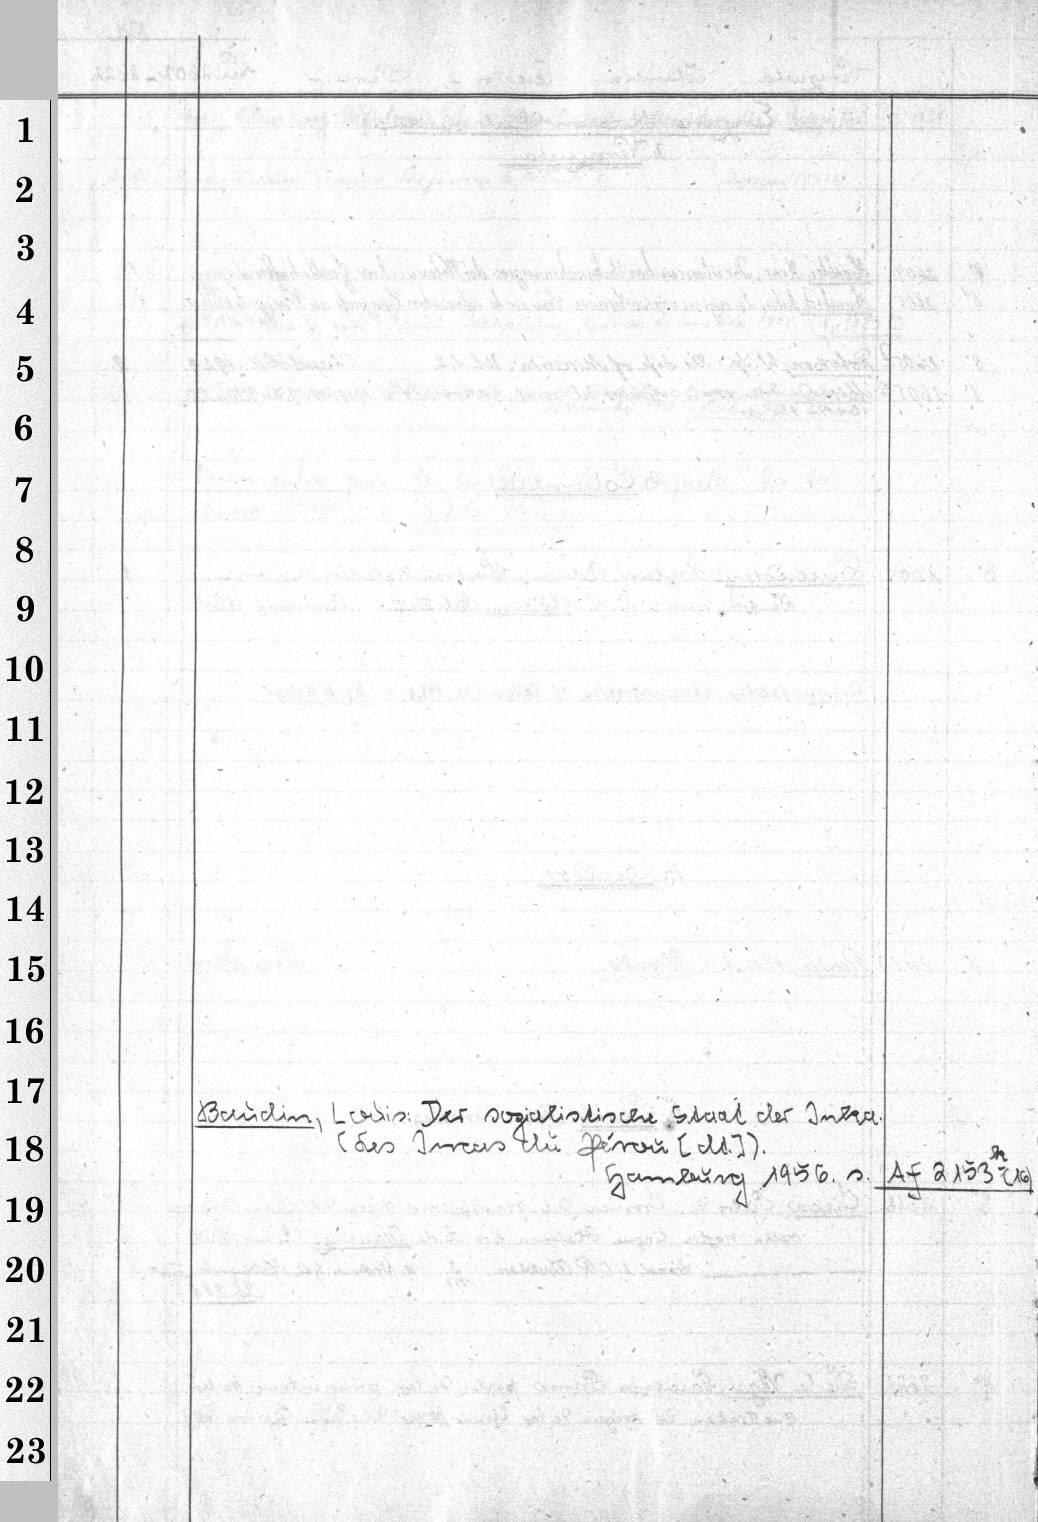 1
2
3
4
5
6
7
8
9
10
11
12
13
14
15
16
17
Baudin, Louis: Der sozialistische Staat der Inka.
18
(des Incas du Pérou [dt.]).
Hamburg 1956. s. Af 2153 (16)
19
20
21
22
23